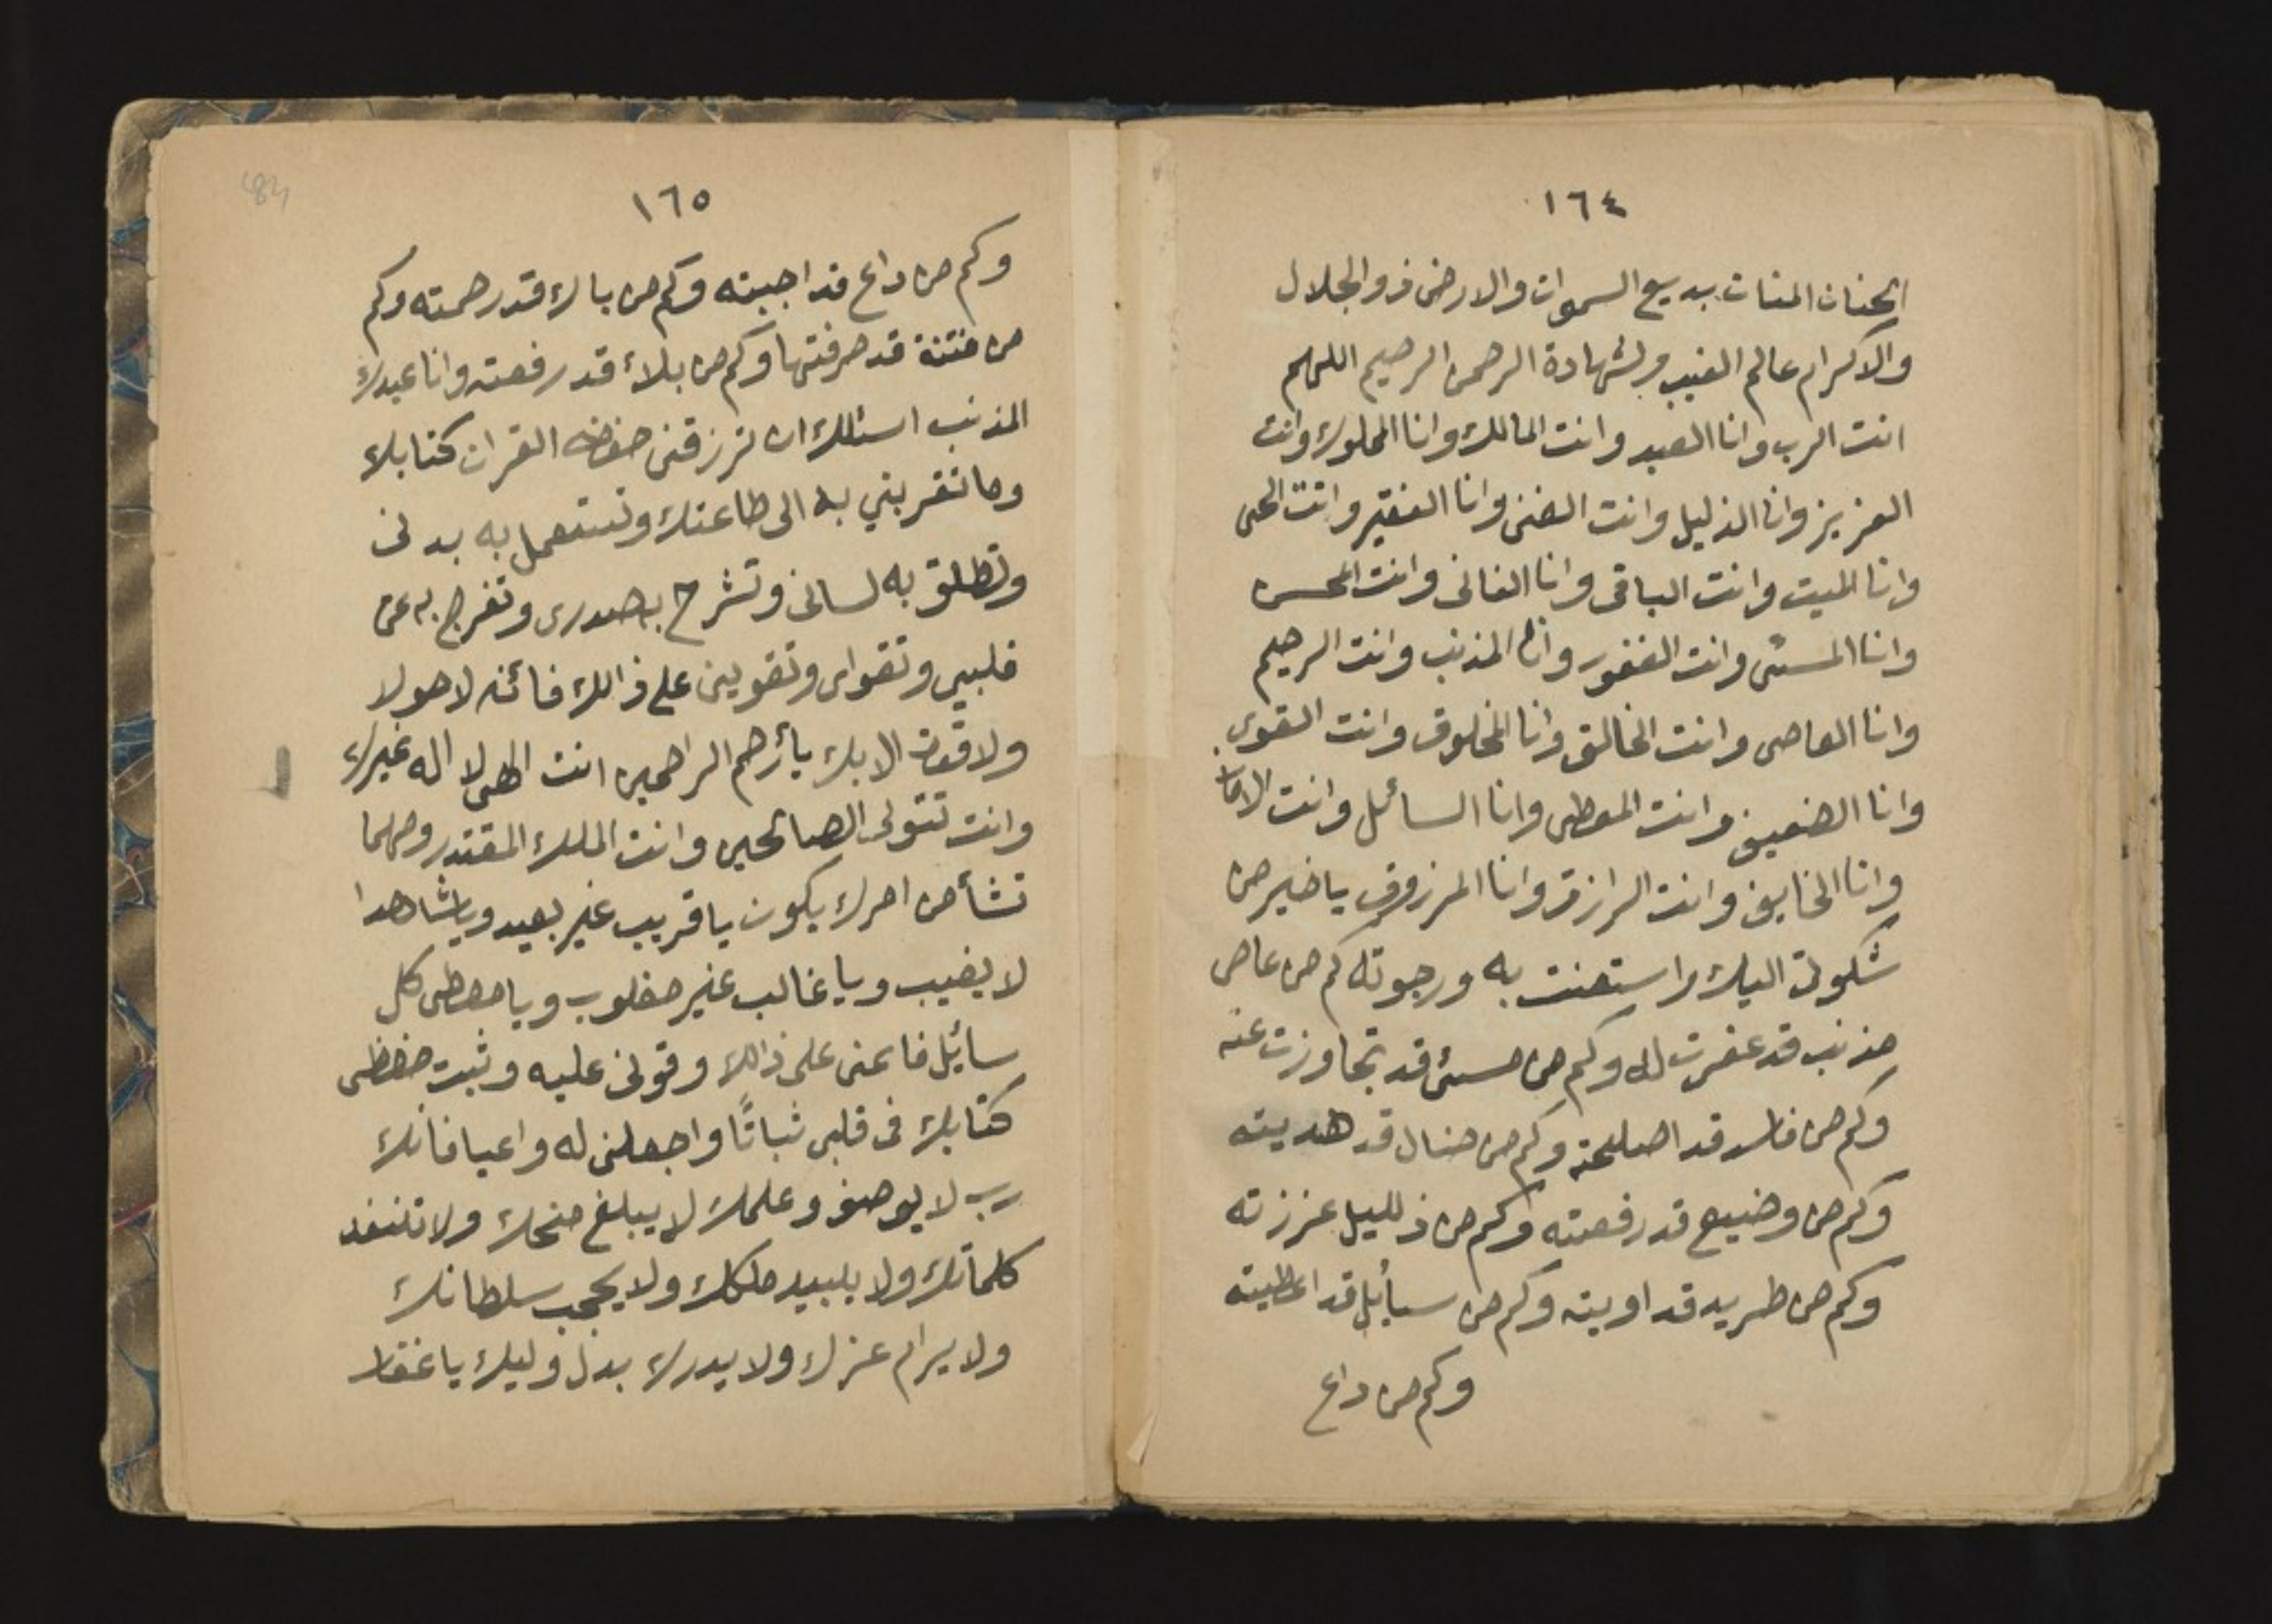 ١٦٤
الحنان المنان بديع السموات والارض ذو الجلال
والاكرام عالم الغيب والشهادة الرحمن الرحيم اللهم
انت الرب وانا العبد وانت المالك وانا المملوك وانت
العزيز وانا الذليل وانت الغنى وانا الفقير وانت الحى
وانا الميت وانت الباقى وانا الفانى وانت المحسن
وانا المسئى وانت الغفور وانا المذنب وانت الرحيم
وانا العاصى وانت الخالق وانا المخلوق وانت القوى
وانا الضعيف وانت المعطى وانا السائل وانت الامان
وانا الخايف وانت الرازق وانا المرزوق يا خير من
شكوت اليك واستعنت به ورجوته كم من عاص
مذنب قد غفرت له وكم من مسئ قد تجاوزت عنه
وكم من فاسد قد اصلحته وكم من ضال قد هديته
وكم من وضيع قد رفعته وكم من ذليل عززته
وكم من طريد قد اويته وكم من سائل قد اعطيته
وكم من داع
١٦٥
وكم من داع قد اجبته وكم من باك قد رحمته وكم
من فتنة قد صرفتها وكم من بلاء قد رفعته وانا عبدك
المذنب اسئلك ان ترزقنى حفظ القران كتابك
وما تقربني به الى طاعتك وتستعمل به بدنى
وتطلق به لسانى وتشرح به صدرى وتفرج به عن
قلبي وتقواى وتقوينى على ذالك فائنه لا حولا
ولا قوت الا بك يا أرحم الراحمين انت الهى لا اله غيرك
وانت تتولى الصالحين وانت الملك المقتدر ومهما
تشأ من امرك يكون يا قريب غير بعيد ويا شاهدا
لا يغيب ويا غالب غير مغلوب ويا معطى كل
سائل فاعنى على ذالك وقونى عليه وثبت حفظى
كتابك فى قلبى ثباتًا واجعلنى له واعيا فانك
رب لا يوصف وعلمك لا يبلغ منحك ولا تنفد
كلماتك ولا يبيد ملكك ولا يحجب سلطانك
ولا يرام عزك ولا يدرك بدل وليك يا غفار